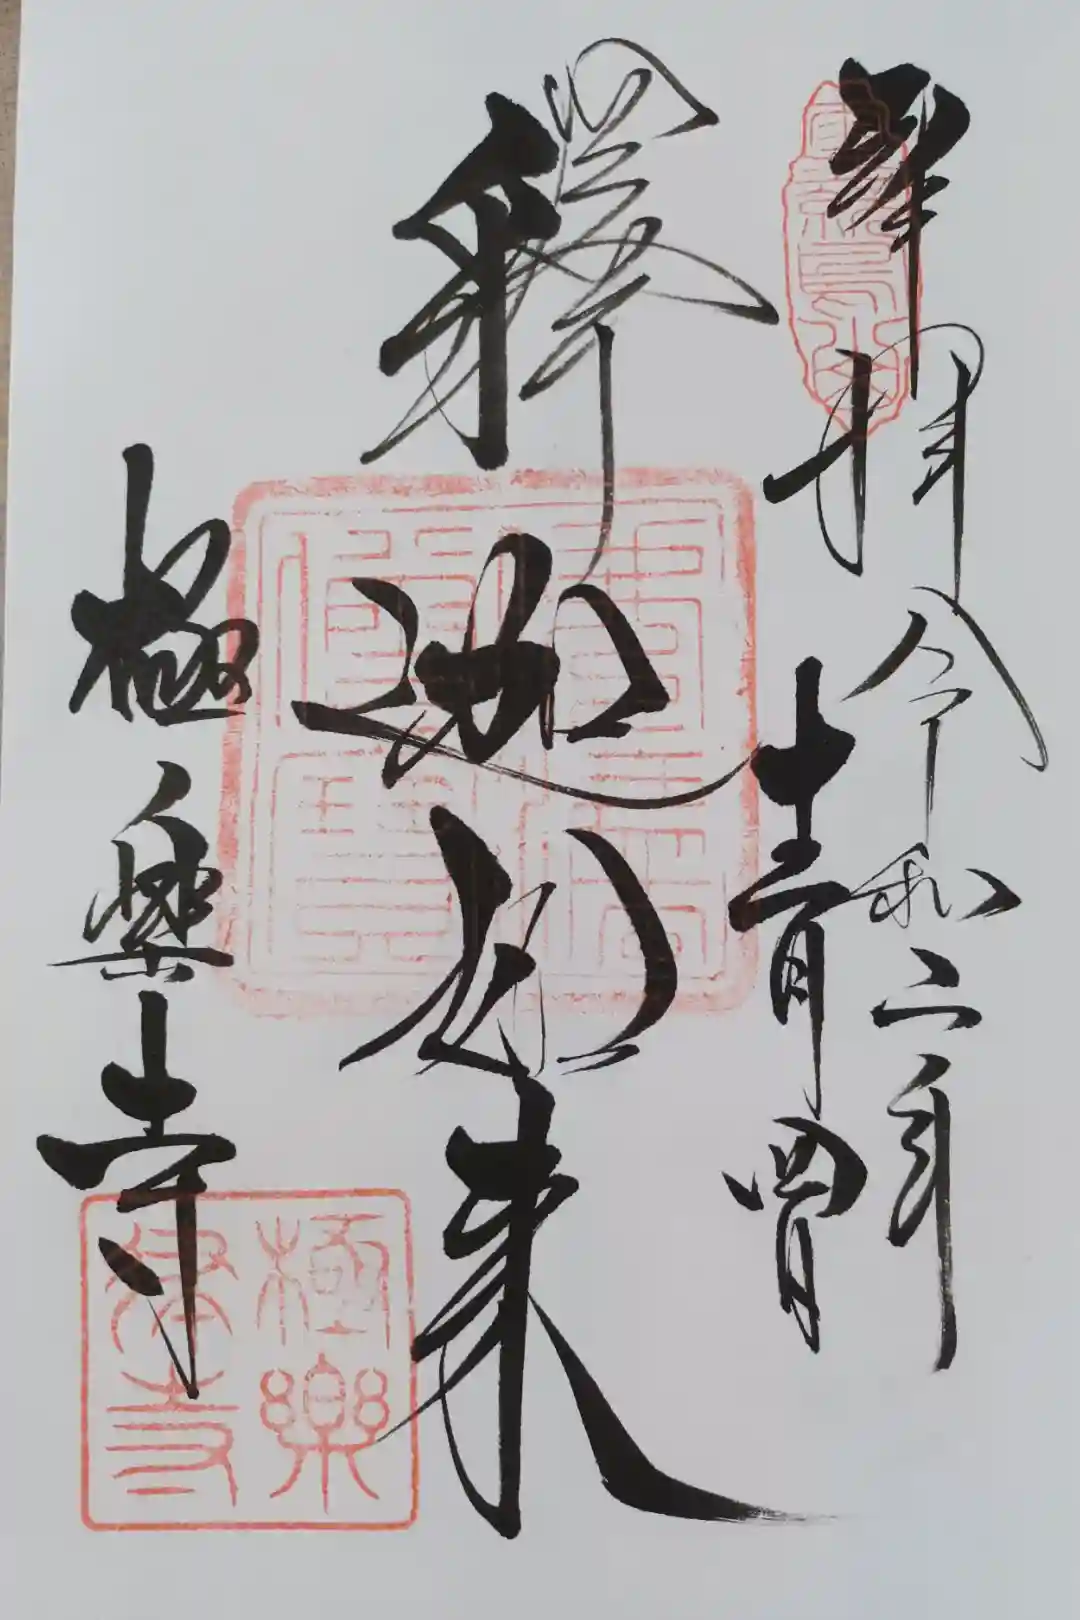 奉拝
令和二年
十二月四日
釋迦如来
極樂寺
極樂
律寺